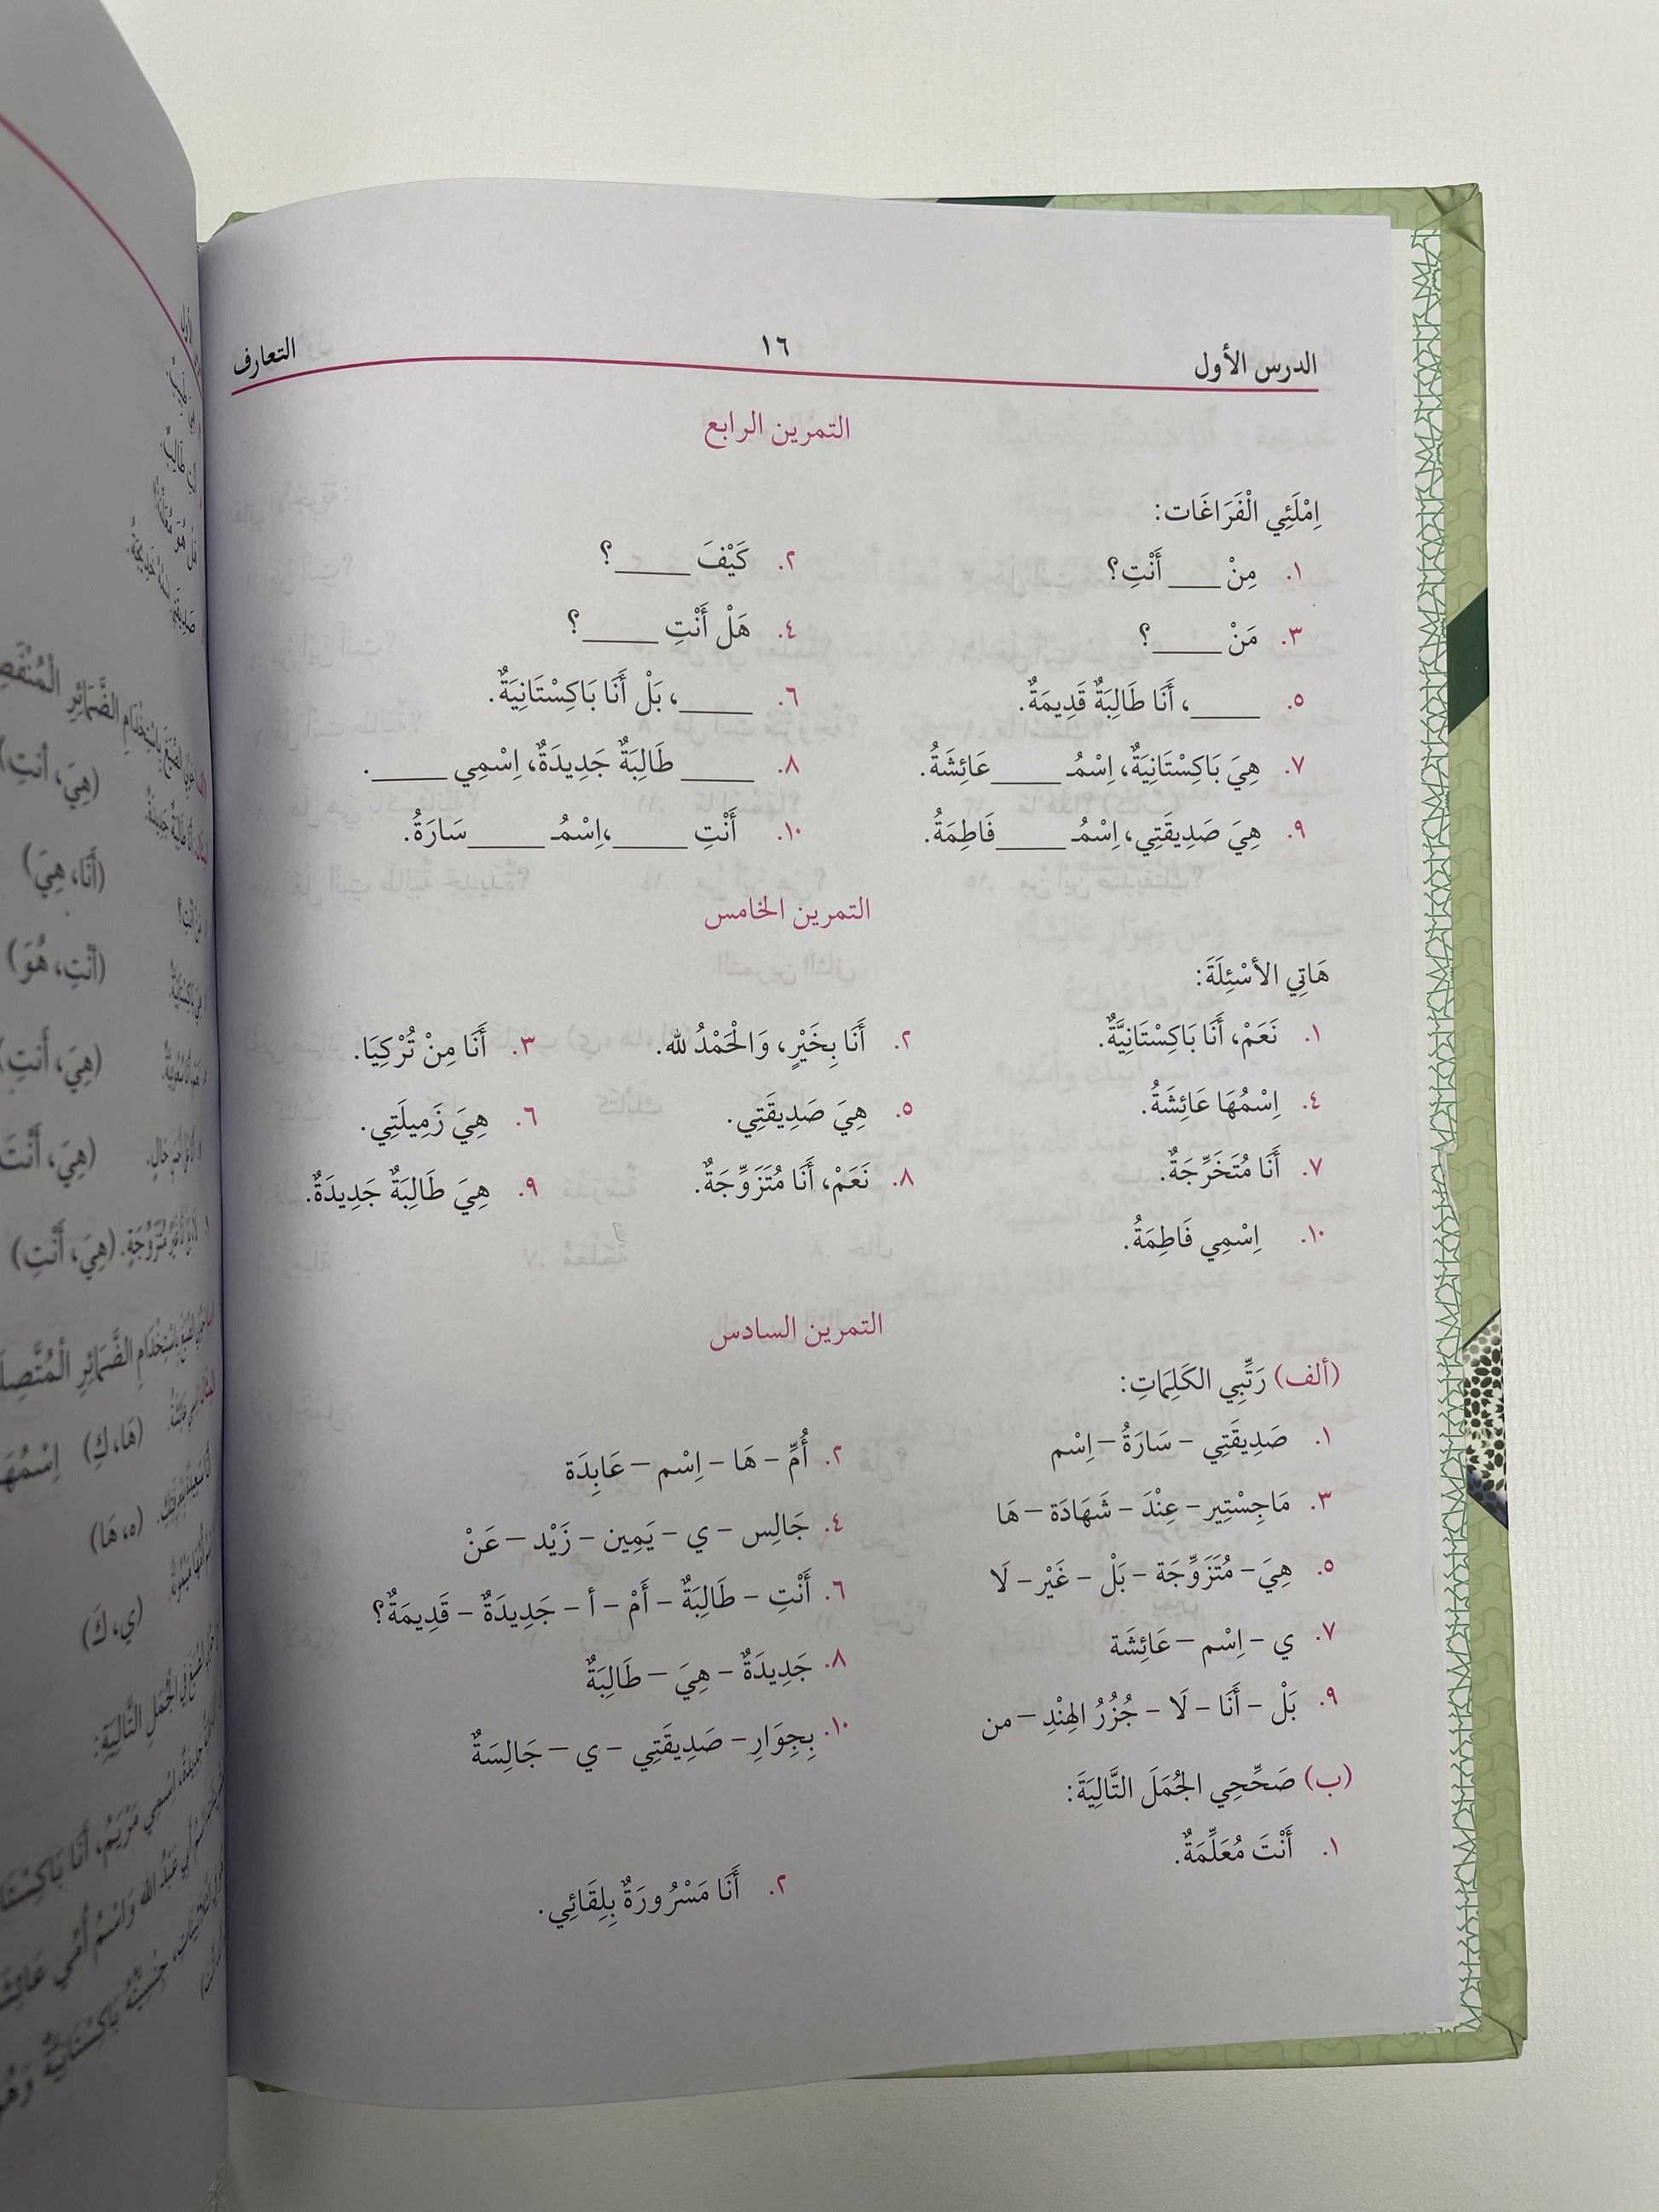 الدرس الأول ١٦ التعارف
التمرين الرابع
اِمْلَئِي الْفَرَاغَات:
١. مِنْ ____ أَنْتِ؟ ٢. كَيْفَ ____؟
٣. مَنْ ____؟ ٤. هَلْ أَنْتِ ____؟
٥. ____، أَنَا طَالِبَةٌ قَدِيمَةٌ. ٦. ____، بَلْ أَنَا بَاكِسْتَانِيَةٌ.
٧. هِيَ بَاكِسْتَانِيَةٌ، اِسْمُـ ____ عَائِشَةُ. ٨. ____ طَالِبَةٌ جَدِيدَةٌ، اِسْمِي ____.
٩. هِيَ صَدِيقَتِي، اِسْمُـ ____ فَاطِمَةُ. ١٠. أَنْتِ ____، اِسْمُـ ____ سَارَةُ.
التمرين الخامس
هَاتِي الأسْئِلَةَ:
١. نَعَمْ، أَنَا بَاكِسْتَانِيَّةٌ. ٢. أَنَا بِخَيْرٍ، وَالْحَمْدُ لله. ٣. أَنَا مِنْ تُرْكِيَا.
٤. اِسْمُهَا عَائِشَةُ. ٥. هِيَ صَدِيقَتِي. ٦. هِيَ زَمِيلَتِي.
٧. أَنَا مُتَخَرِّجَةٌ. ٨. نَعَمْ، أَنَا مُتَزَوِّجَةٌ. ٩. هِيَ طَالِبَةٌ جَدِيدَةٌ.
١٠. اِسْمِي فَاطِمَةُ.
التمرين السادس
(ألف) رَتِّبِي الكَلِمَاتِ:
١. صَدِيقَتِي – سَارَةُ – اِسْم ٢. أُمِّ – هَا – اِسْم – عَابِدَة
٣. مَاجِسْتِير – عِنْدَ – شَهَادَة – هَا ٤. جَالِس – ي – يَمِين – زَيْد – عَنْ
٥. هِيَ – مُتَزَوِّجَة – بَلْ – غَيْر – لَا ٦. أَنْتِ – طَالِبَةٌ – أَمْ – أ – جَدِيدَةٌ – قَدِيمَةٌ؟
٧. ي – اِسْم – عَائِشَة ٨. جَدِيدَةٌ – هِيَ – طَالِبَةٌ
٩. بَلْ – أَنَا – لَا – جُزُرُ الهِنْدِ – من ١٠. بِجِوَارِ – صَدِيقَتِي – ي – جَالِسَةٌ
(ب) صَحِّحِي الجُمَلَ التَّالِيَةَ:
١. أَنْتَ مُعَلِّمَةٌ. ٢. أَنَا مَسْرُورَةٌ بِلِقَائِي.
(هِيَ، أَنتِ)
(أَنَا، هِيَ)
(أَنْتِ، هُوَ)
(هِيَ، أَنتِ)
(هِيَ، أَنْتَ
(هِيَ، أَنْتِ)
(هَا، كِ)
(ه، هَا)
(ي، كَ)